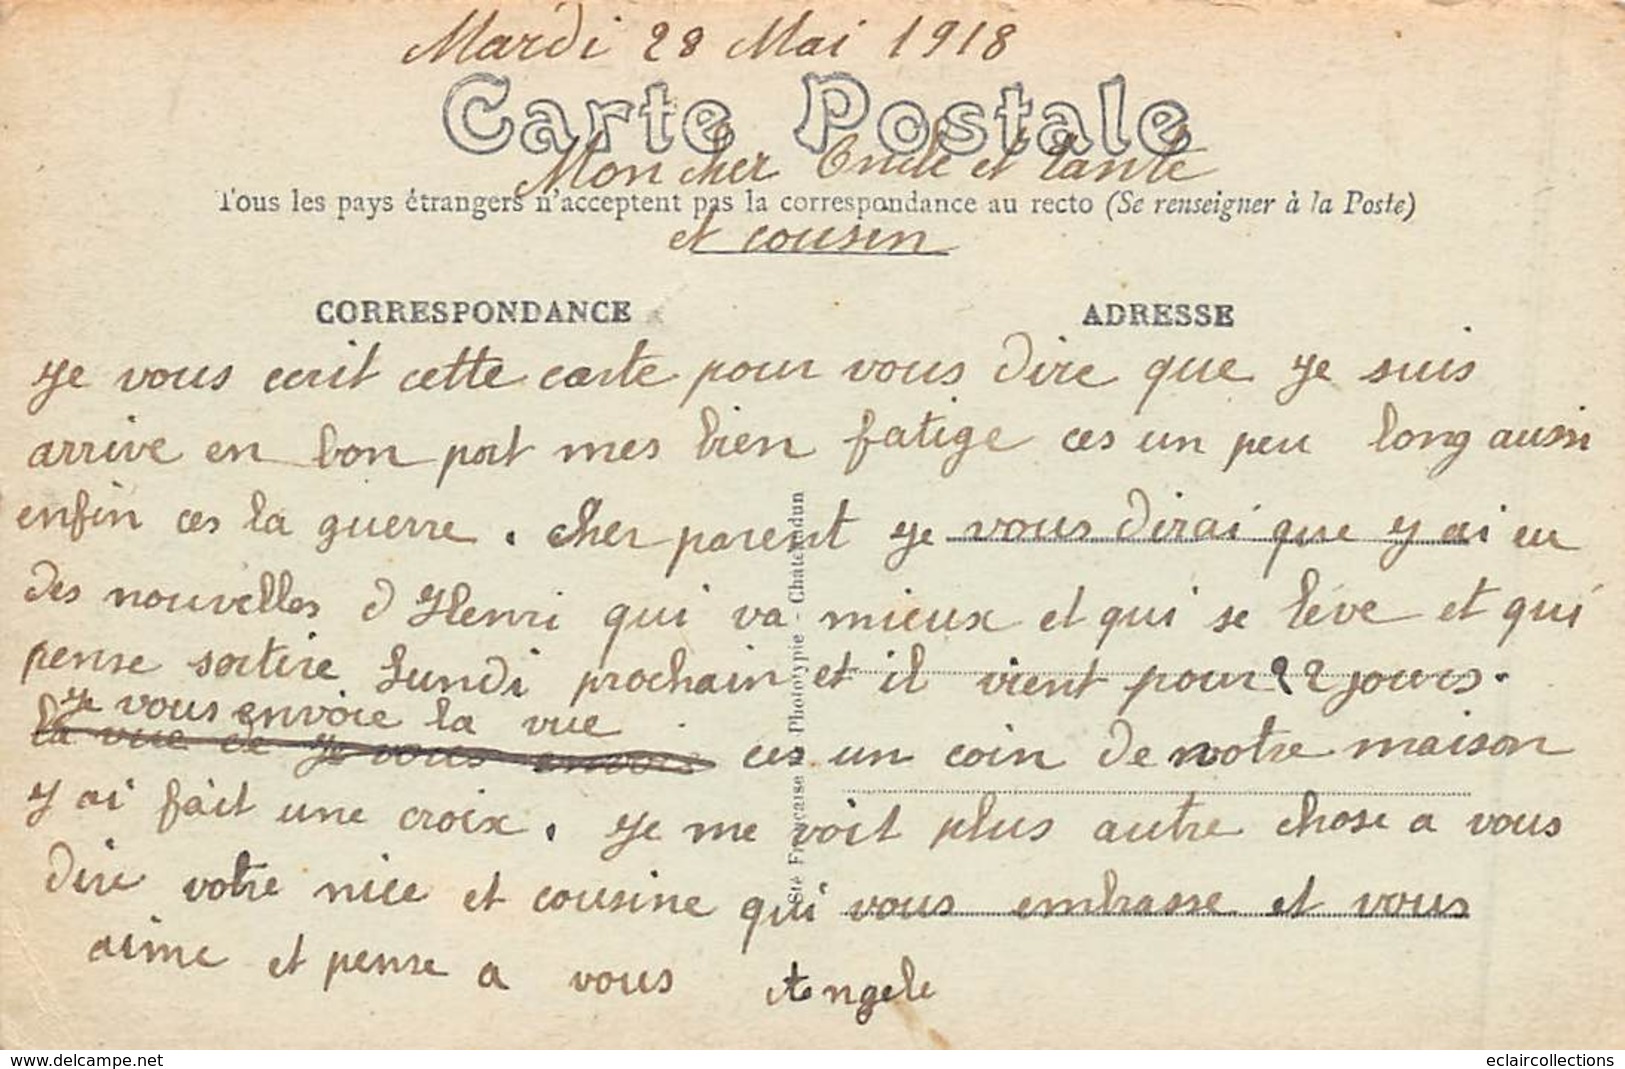 Mardi 28 Mai 1918
Carte Postale
Mon cher Oncle et tante
Tous les pays étrangers n'acceptent pas la correspondance au recto (Se renseigner à la Poste)
et cousin
CORRESPONDANCE
ADRESSE
Je vous ecrit cette carte pour vous dire que je suis
arrive en bon port mes bien fatige ces un peu long aussi
enfin ces la guerre. Cher parent je vous dirai que j ai eu
des nouvelles d Henri qui va mieux et qui se lève et qui
pense sortire Lundi prochain et il vient pour 22 jours.
Je vous envoie la vue
la vue de je vous envoie ces un coin de notre maison
J ai fait une croix. Je me voit plus autre chose a vous
dire votre nice et cousine qui vous embrasse et vous
aime et pense a vous Angele
Sté Française Phototypie - Châteaudun
www.delcampe.net
eclaircollections